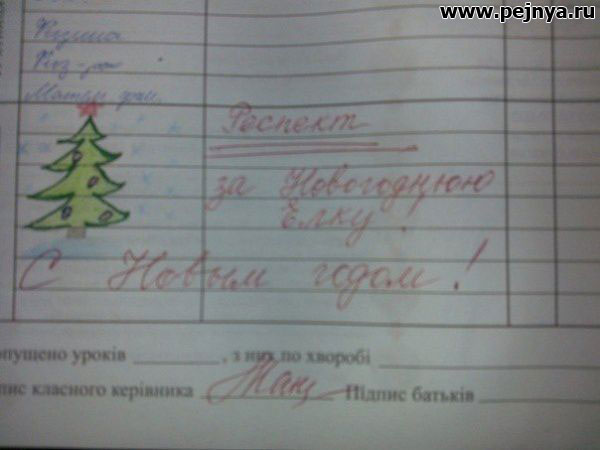 www.pejnya.ru
Физика
Физ-ра
Матем
Респект
за Новогоднюю
Ёлку!
С Новым годом!
опущено уроків , з них по хворобі
пис класного керівника Підпис батьків